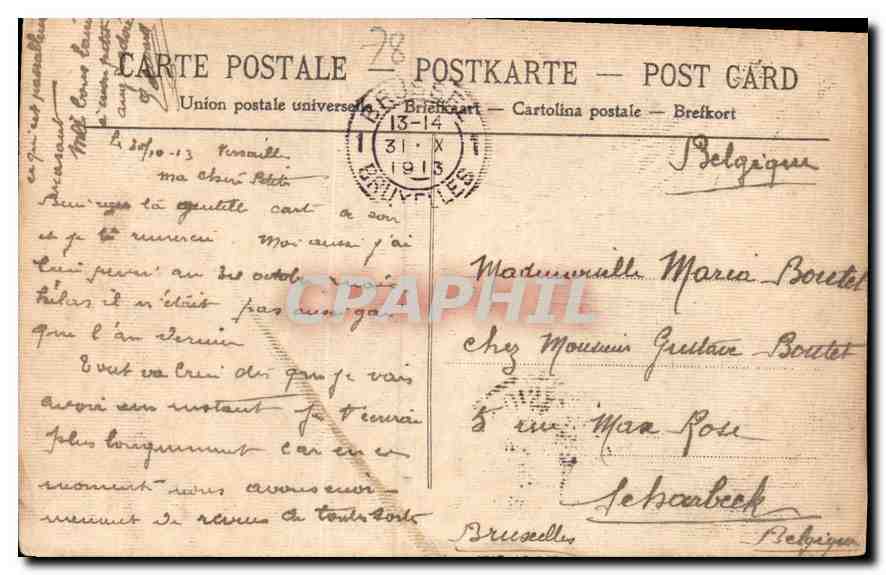 78
CARTE POSTALE — POSTKARTE — POST CARD
Union postale universelle — Briefkaart — Cartolina postale — Brefkort
BRUXELLES
13-14
1 31 · X 1
1913
BRUXELLES
Le 30/10-13 Versailles
ma chère Petite
Bien reçu la gentille carte de
et je te remercie. Moi aussi j'ai
bien pensé au 30 octobre mais
hélas il n'était pas aussi gai
que l'an dernier
Tout va bien dès que je vais
avoir un instant je t'écrirai
plus longuement car en ce
moment nous avons
de revues de toutes sortes
ce qui est
Mille bons
Belgique
Mademoiselle Maria Boutet
chez Monsieur Gustave Boutet
5 rue Max Rose
Scharbeck
Bruxelles Belgique
CPAPHIL